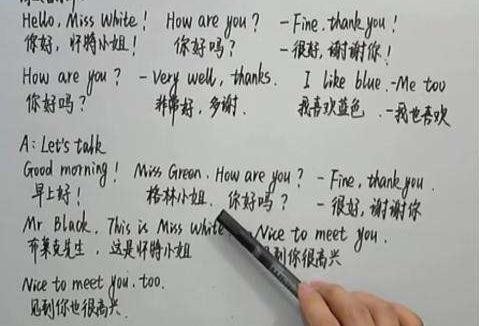 Hello, Miss White! How are you? -Fine, thank you!
你好,怀特小姐! 你好吗? -很好,谢谢你!
How are you? -Very well, thanks. I like blue. -Me too
你好吗? 非常好,多谢. 我喜欢蓝色. -我也喜欢
A: Let's talk
Good morning! Miss Green. How are you? -Fine, thank you.
早上好! 格林小姐. 你好吗? -很好,谢谢你
Mr Black, This is Miss White Nice to meet you.
布莱克先生,这是怀特小姐 见到你很高兴
Nice to meet you, too.
见到你也很高兴.